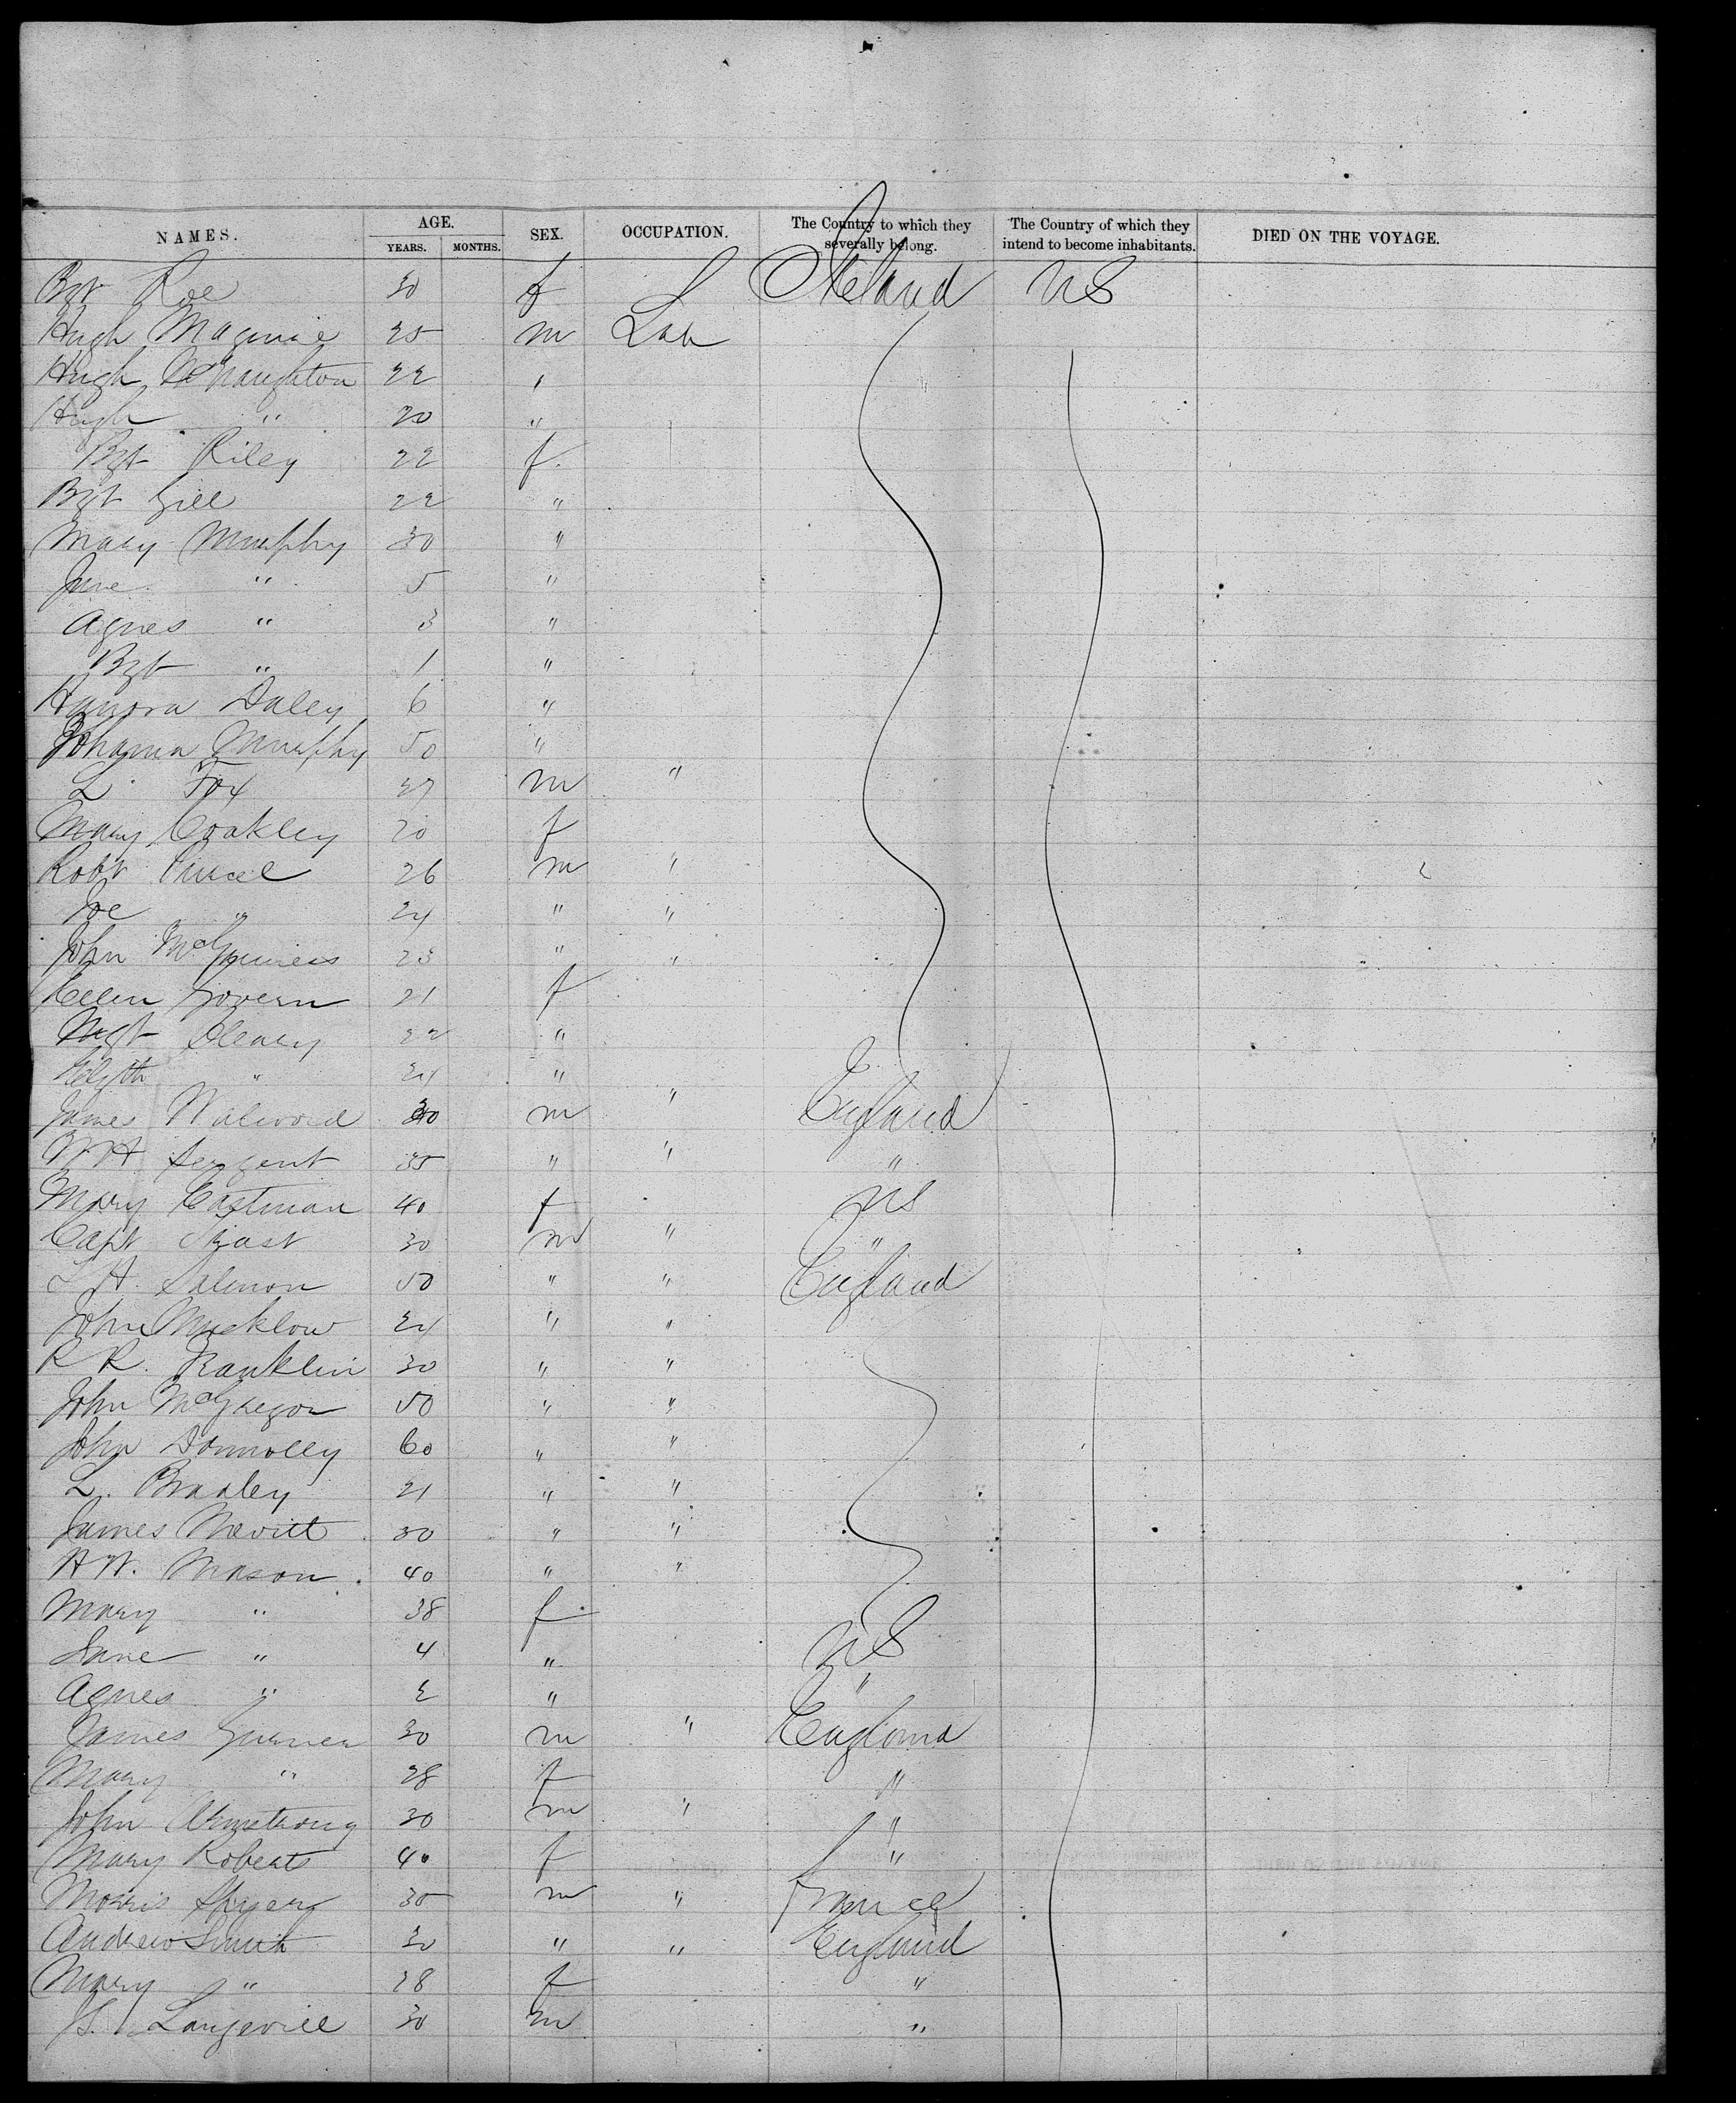 NAMES. AGE. YEARS. MONTHS. SEX. OCCUPATION. The Country to which they severally belong. The Country of which they intend to become inhabitants. DIED ON THE VOYAGE.
Bgt Roe 30 f Ireland US
Hugh Maguire 25 m Lab
Hugh 22 "
Hugh " 20 "
Bgt Riley 22 f.
Bgt Gill 22 "
Mary Murphy 30 "
Jane " 5 "
Agnes " 3 "
Bgt " 1 "
Hanora Daley 6 "
Johanna Murphy 50 "
L Fox 27 m "
Mary Coakley 20 f
Robt 26 m "
Joe " 24 " "
John McGuiness 23 " "
Ellen Govern 21 f
Mgt 22 "
" 24 "
James Walwood m " England
Sergent 35 " " "
Mary Eastman 40 f US
Capt 30 m " "
L H. Salmon 50 " " England
John Mucklow 24 " "
R R. Franklin 30 " "
John McGregor 50 " "
John Donnolly 60 " "
L. Bradley 21 " "
James Nevitt 30 " "
H W. Mason 40 " "
Mary " 38 f
Jane " 4 " US
Agnes " 2 " "
James 30 m " England
Mary " 28 f "
John Armstrong 30 m " "
Mary Roberts 40 f "
Morris 35 m " France
Andrew Smith 30 " " England
Mary " 28 f "
Langevill 30 m "